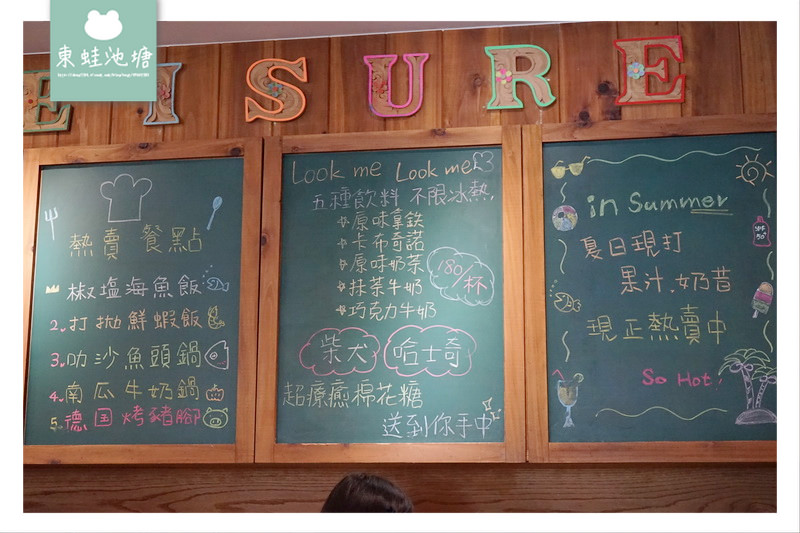 東蛙池塘
EISURE
熱賣餐點
椒塩海魚飯
2. 打拋鮮蝦飯
3. 叻沙魚頭鍋
4. 南瓜牛奶鍋
5. 德国烤豬腳
Look me Look me
五種飲料 不限冰熱
原味拿鉄
卡布奇諾
原味奶茶
抹茶牛奶
巧克力牛奶
180/杯
柴犬 哈士奇
超療癒棉花糖
送到你手中
in Summer
夏日現打
果汁.奶昔
現正熱賣中
So Hot!
SPF
50+